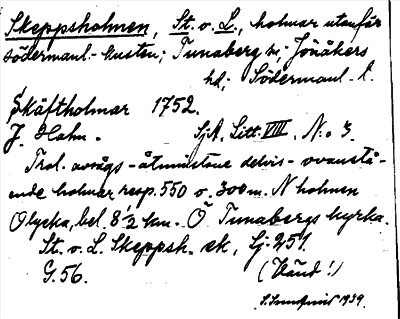 Skeppsholmen, St. o. L., holmar utanför
södermanl.-kusten; Tunaberg sn; Jönåkers
hd; Södermanl. l.
Skäftholmar 1752.
J. Hahn. SjA, Litt. VIII, N:o 3.
Trol. avsågs - åtminstone delvis - ovanstå-
ende holmar resp. 550 o. 300 m. N holmen
Olycka, bel. 8 1/2 km. Ö Tunabergs kyrka.
St. o. L. Skeppsh. ek, Sj. 251.
G. 56. (Vänd!)
1939.